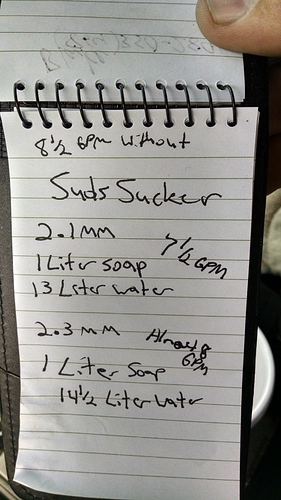 8 1/2 GPM without
Suds Sucker
2.1 MM
7 1/2 GPM
1 Liter soap
13 Liter water
2.3 MM
Almost 8
GPM
1 Liter Soap
14 1/2 Liter water